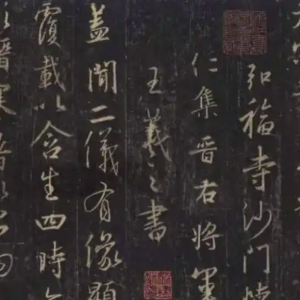 弘福寺沙門懷
仁集晉右將軍
王羲之書
蓋聞二儀有像顯
覆載以含生四時